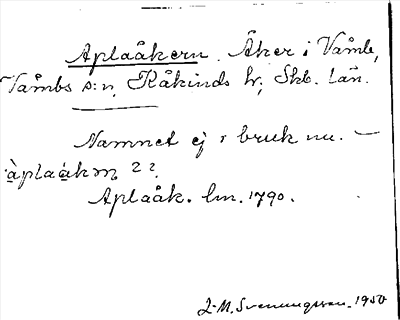 Aplaåkern. Åker i Våmb,
Våmbs s:n, Kåkinds hr, Skb. län.
Namnet ej i bruk nu. —
àplaåkm ??.
Aplaåk. lm. 1790.
L-M. Svenungsson. 1950